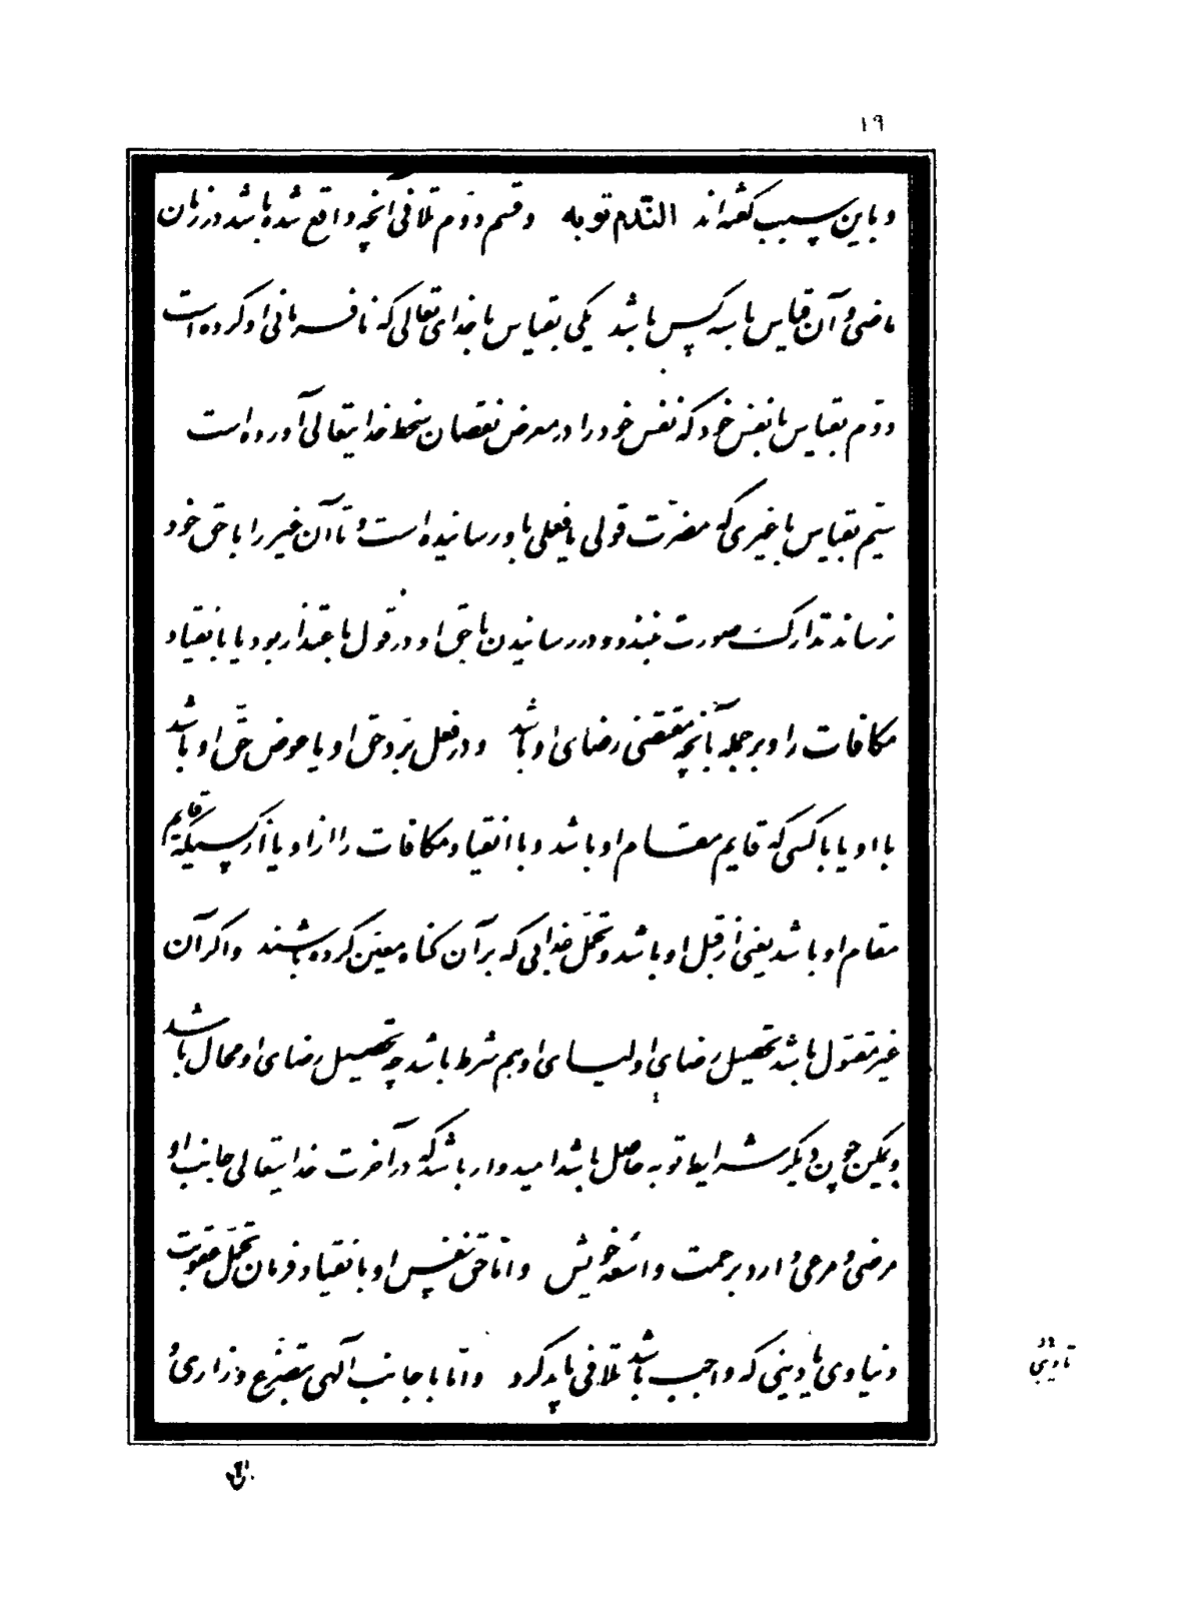 ۱۹
و باین سبب گفته‌اند الندم توبه و قسم دوم تلافی آنچه واقع شده باشد در زمان
ماضی و آن قیاس با سه کس باشد یکی بقیاس با خدای تعالی که نافرمانی او کرده است
دوم بقیاس با نفس خود که نفس خود را در معرض نقصان سخط خدایتعالی آورده است
سیم بقیاس با غیری که مضرت قولی یا فعلی باو رسانیده است و تا آن غیر را با حق خود
نرساند تدارک صورت نبندد و در رسانیدن با حق او در قول باعتذار بود یا بانقیاد
مکافات را و بر جمله بآنچه مقتضی رضای او باشد و در فعل برد حق او یا عوض حق او باشد
با او یا با کسی که قایم مقام او باشد و با انقیاد مکافات را از او یا از کسیکه قایم
مقام او باشد یعنی از قبل او باشد و تحمل عذابی که بر آن گناه معین کرده باشند و اگر آن
غیر مقتول باشد تحصیل رضای اولیای او هم شرط باشد چه تحصیل رضای او محال باشد
ولیکن چون دیگر شرایط توبه حاصل باشد امیدوار باشد که در آخرت خدایتعالی جانب او
مرضی و مرعی دارد برحمت واسعه خویش و اما حق نفس او بانقیاد فرمان تحمل عقوبت
دنیاوی یا دینی که واجب باشد تلافی باید کرد و اما با جانب الهی بتضرع و زاری و